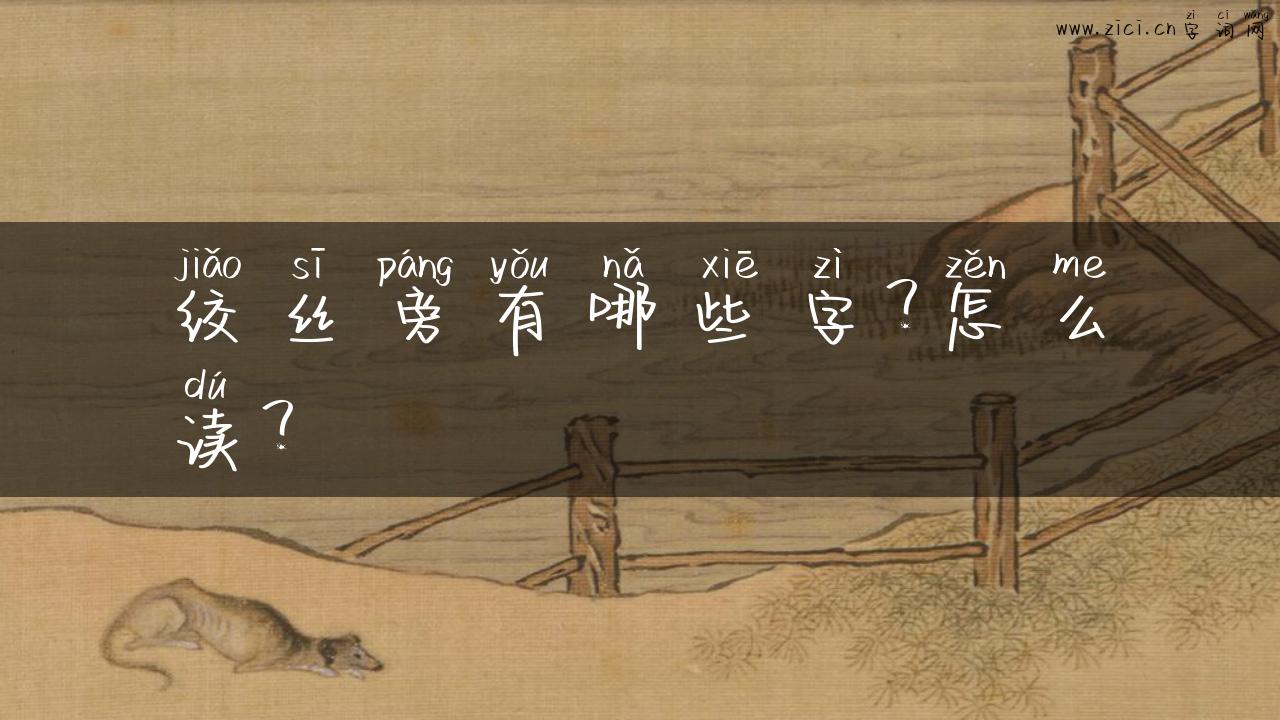 zi ci wang
www.zici.cn字词网
jiǎo sī páng yǒu nǎ xiē zì zěn me
绞丝旁有哪些字?怎么
dú
读?